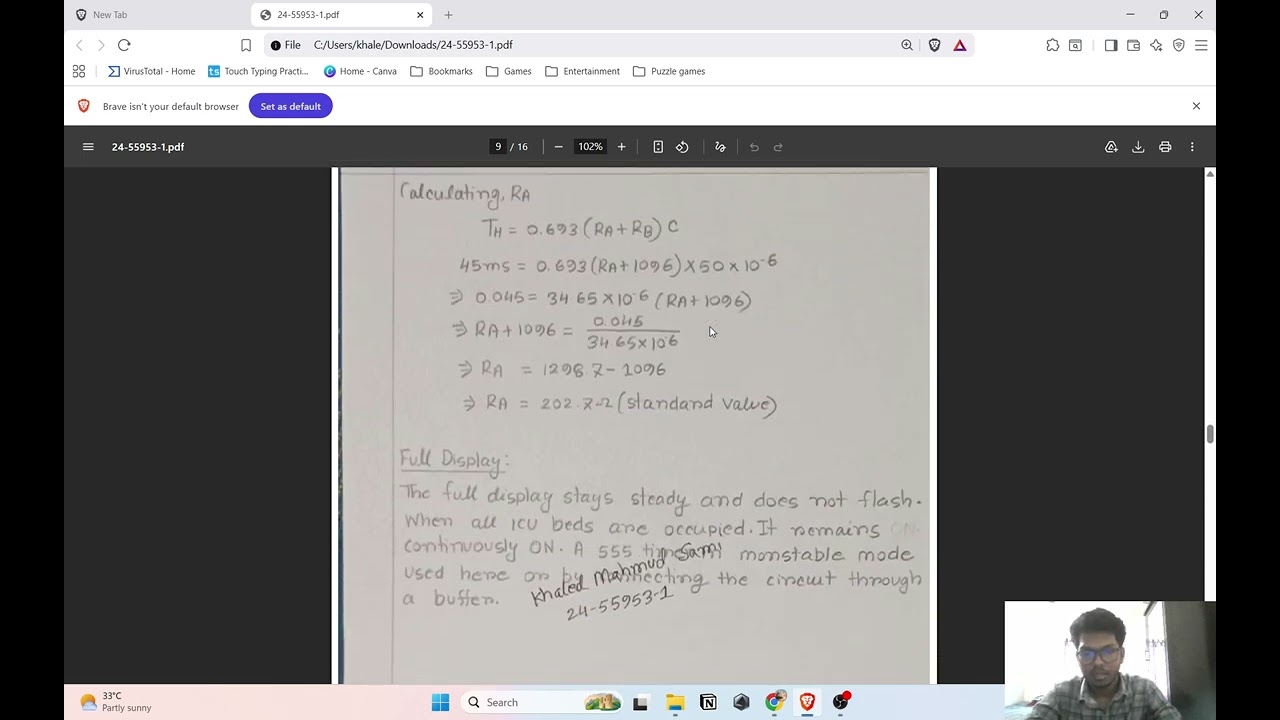 New Tab
24-55953-1.pdf
File C:/Users/khale/Downloads/24-55953-1.pdf
VirusTotal - Home
ts Touch Typing Practi...
Home - Canva
Bookmarks
Games
Entertainment
Puzzle games
Brave isn't your default browser
Set as default
24-55953-1.pdf
9 / 16
102%
Calculating, RA
TH = 0.693 (RA + RB) C
45ms = 0.693 (RA + 1096) × 50 × 10-6
⇒ 0.045 = 34.65 × 10-6 (RA + 1096)
⇒ RA + 1096 = 0.045
34.65 × 106
⇒ RA = 1298.7 - 1096
⇒ RA = 202.7 Ω (standand value)
Full Display:
The full display stays steady and does not flash.
When all ICU beds are occupied. It remains ON
continuously ON. A 555 monstable mode
used here or the circuit through
a buffer.
Khaled Mahmud Sami
24-55953-1
33°C
Partly sunny
Search